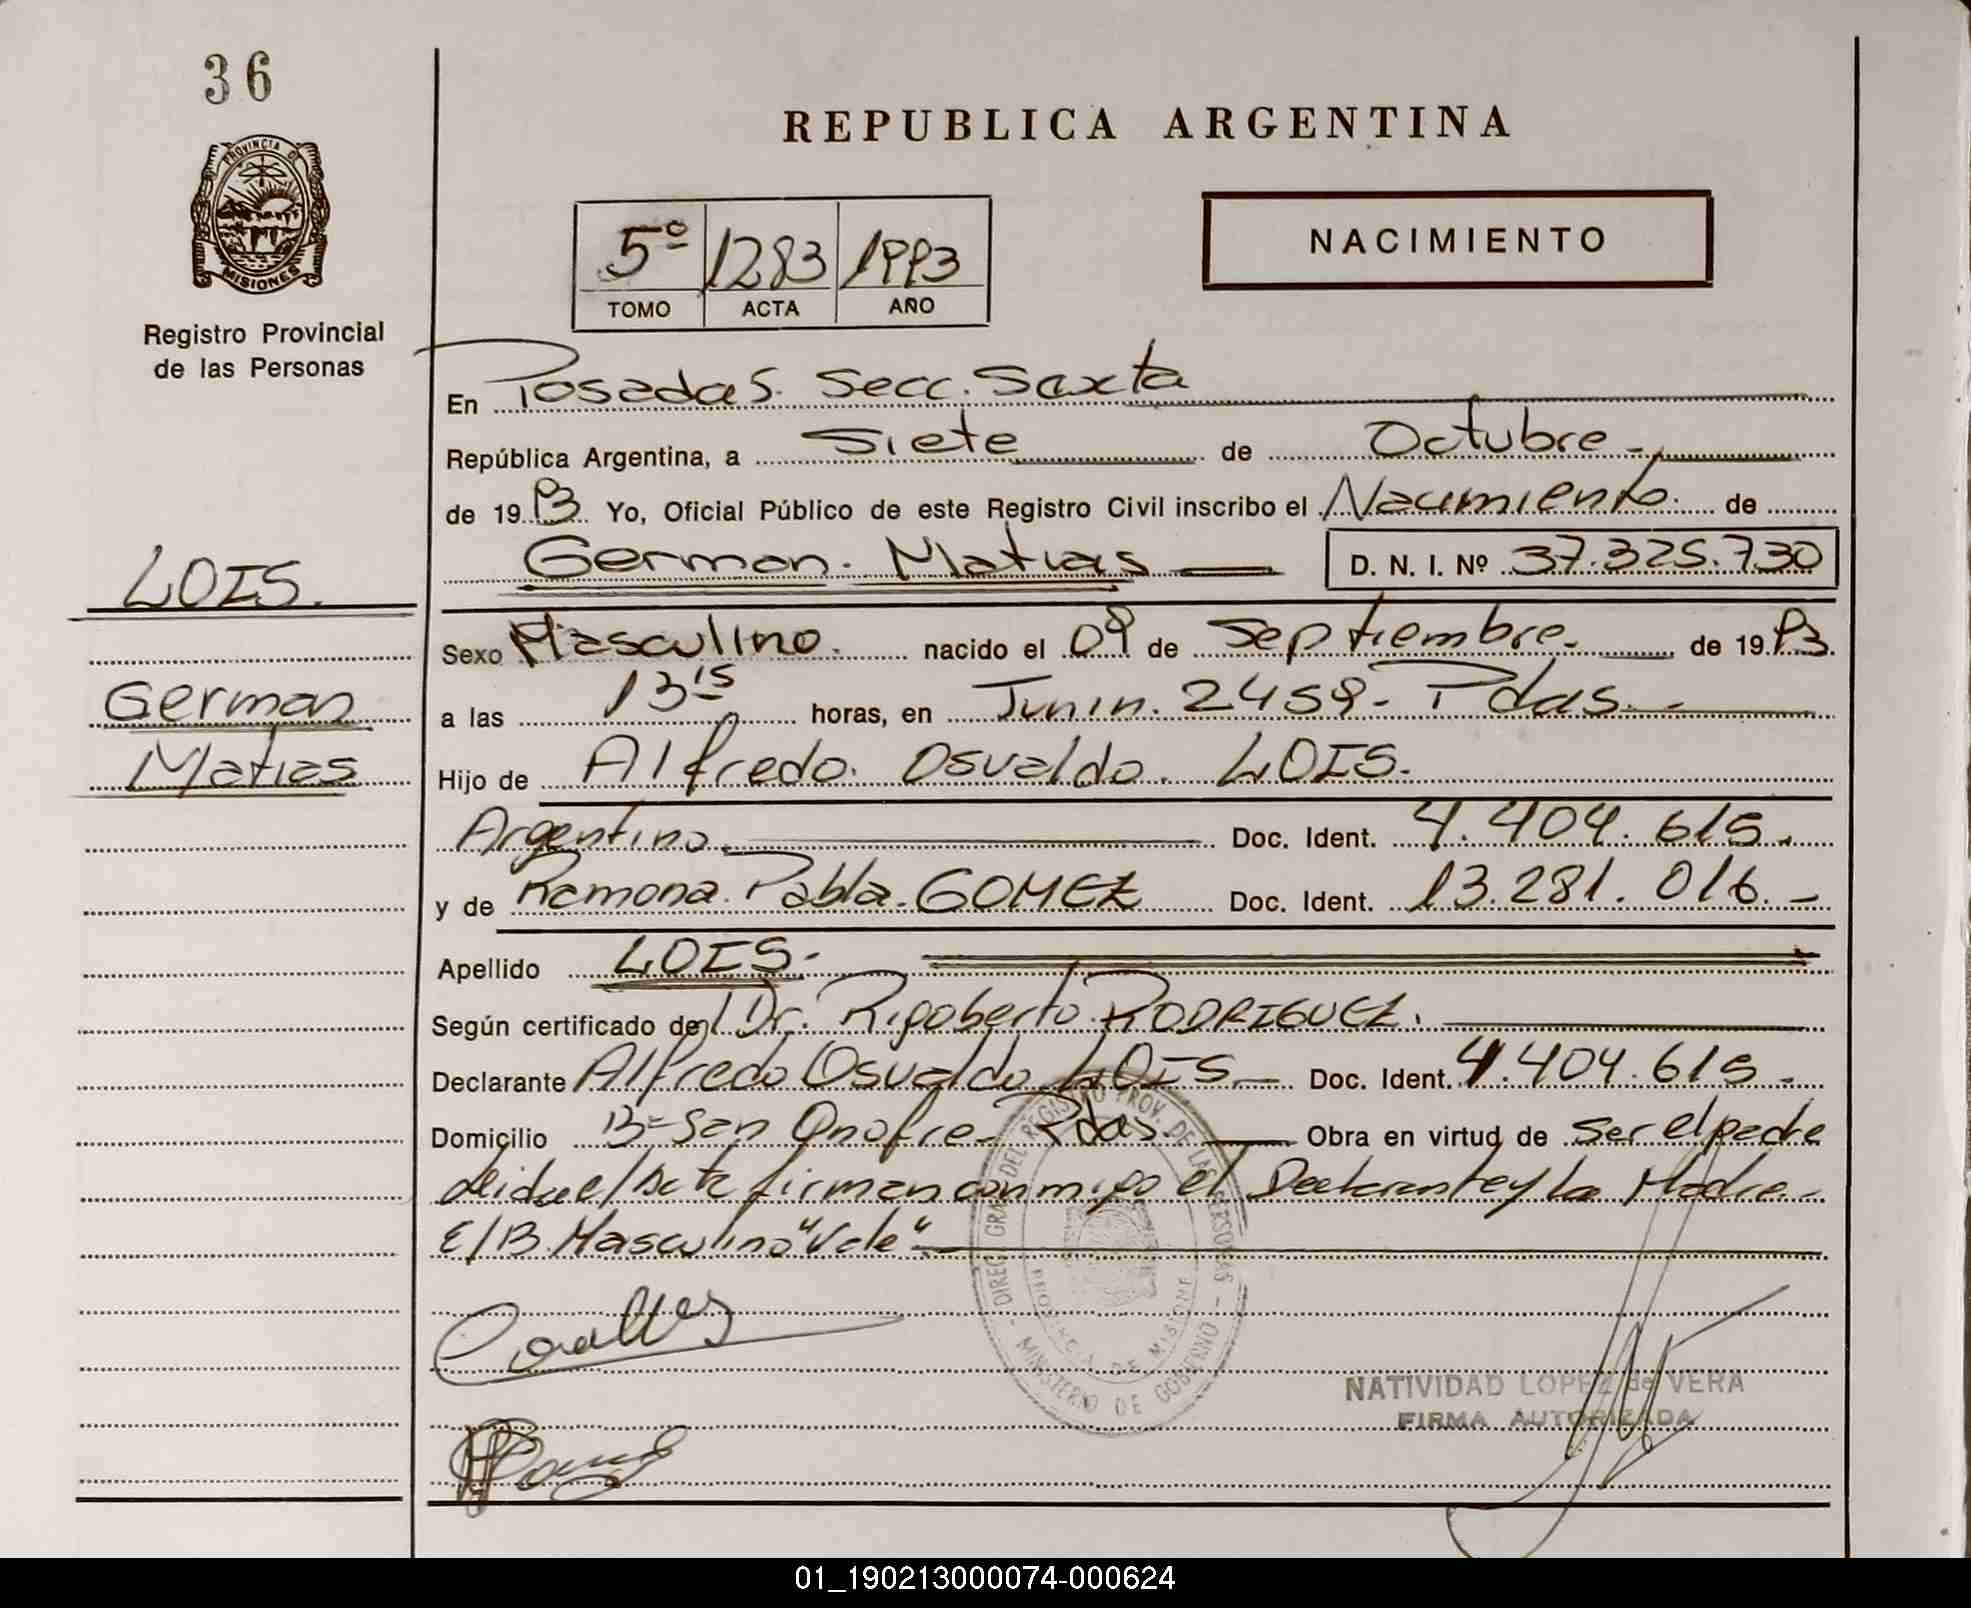 36
PROVINCIA DE
MISIONES
Registro Provincial
de las Personas
LOIS.
German
Matias
REPUBLICA ARGENTINA
5º 1283 1993
TOMO ACTA AÑO
NACIMIENTO
En Posadas. Secc. Sexta
República Argentina, a Siete de Octubre
de 1993 Yo, Oficial Público de este Registro Civil inscribo el Nacimiento de
German. Matias D. N. I. Nº 37.325.730
Sexo Masculino. nacido el 09 de Septiembre. de 1993.
a las 13 15 horas, en Junin. 2459 - Pdas.
Hijo de Alfredo. Osvaldo. LOIS.
Argentino. Doc. Ident. 4.404.615.
y de Ramona. Pabla. GOMEZ Doc. Ident. 13.281.016.-
Apellido LOIS.-
Según certificado del Dr. Rigoberto RODRIGUEZ.
Declarante Alfredo Osvaldo LOIS - Doc. Ident. 4.404.615.-
Domicilio Bº San Onofre - Pdas. Obra en virtud de ser el padre
Leida el Acta firman conmigo el Declarante y la Madre
E/B. Masculino "Vale"
DIREC. GRAL. DEL REGISTRO PROV. DE LAS PERSONAS
PROVINCIA DE MISIONES
MINISTERIO DE GOBIERNO
NATIVIDAD LOPEZ de VERA
FIRMA AUTORIZADA
01_190213000074-000624